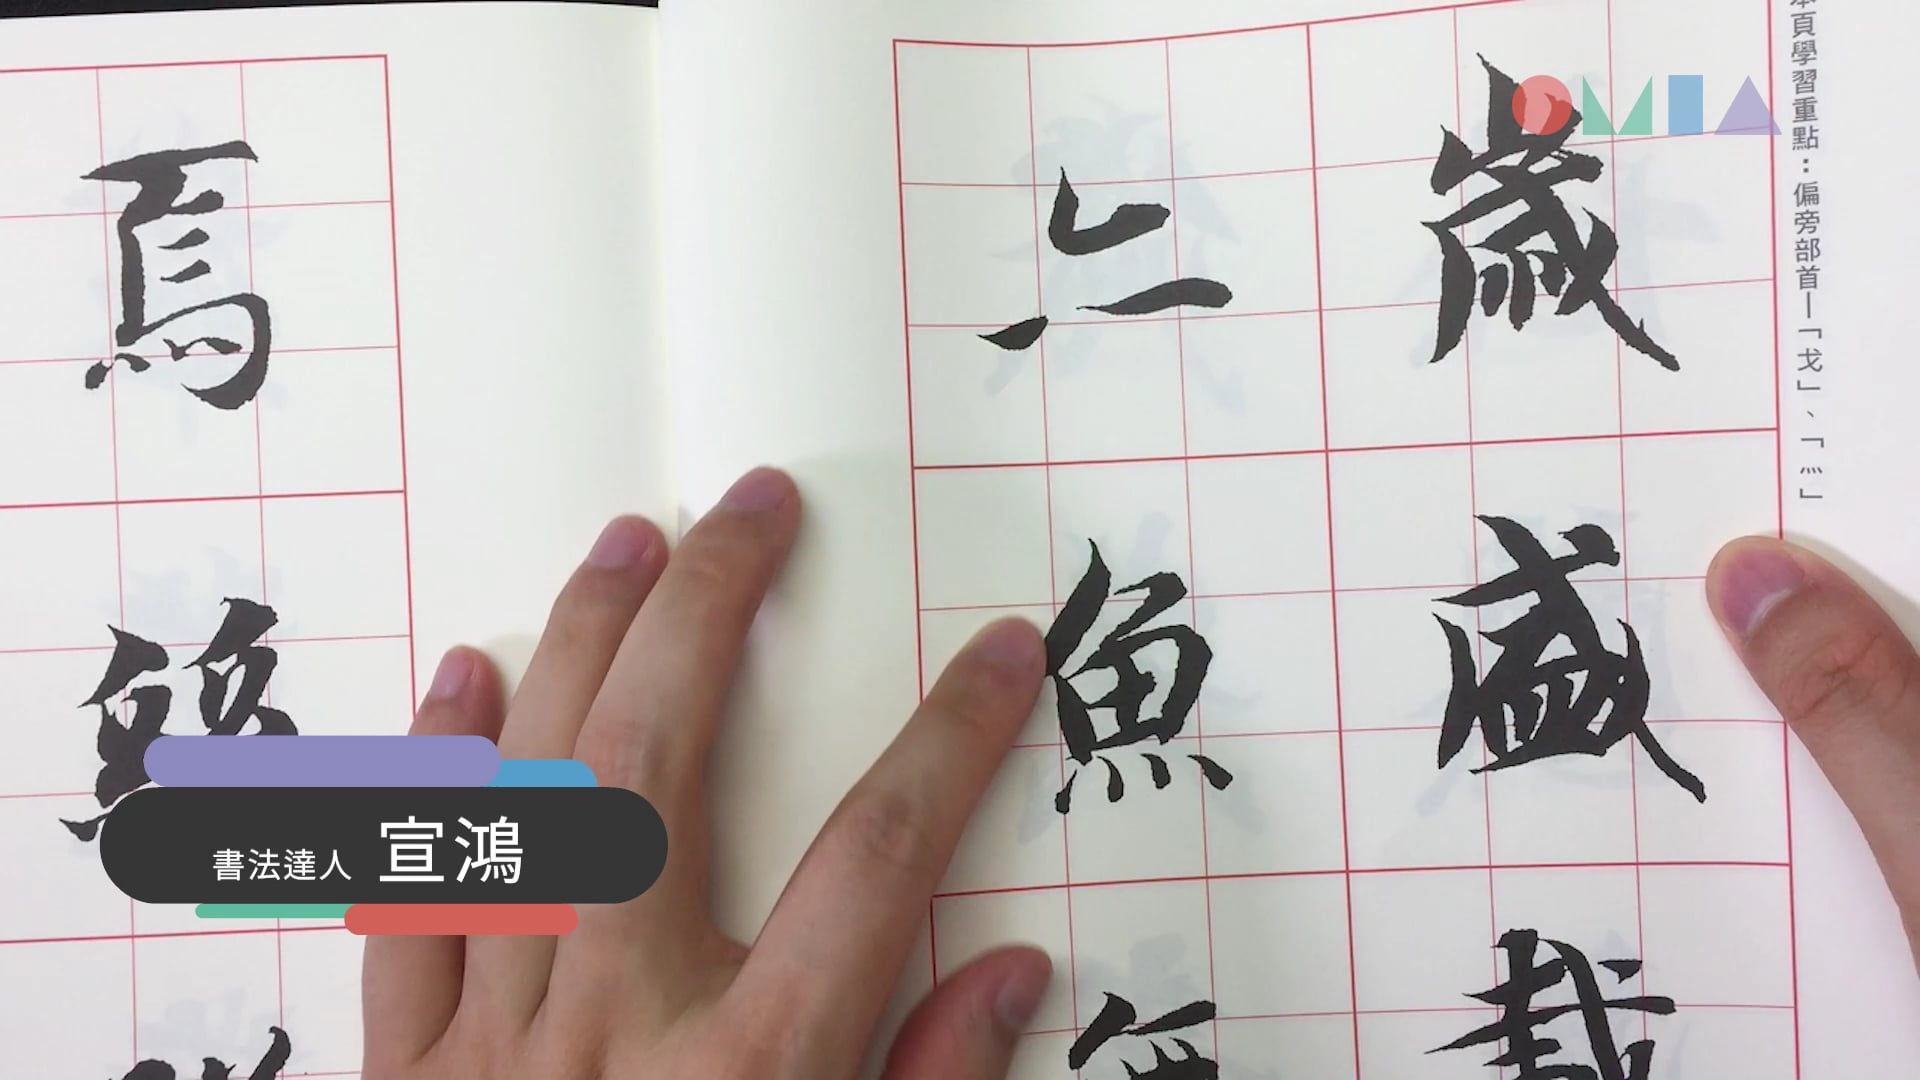 本頁學習重點：偏旁部首—「戈」、「灬」
歲
盛
載
魚
無
焉
OMIA
書法達人 宣鴻